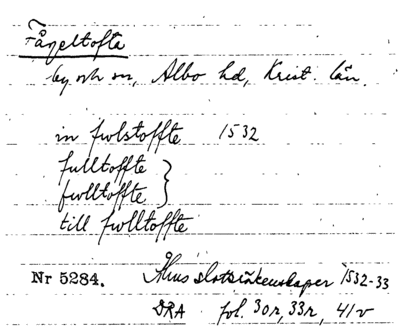 Fågeltofta
by och sn, Albo hd, Krist. län.
in fwlstoffte 1532
fulltoffte
fwlltoffte
till fwlltoffte
Nr 5284. Åhus slotsräkenskaper 1532-33
DRA fol. 30r, 33r, 41v